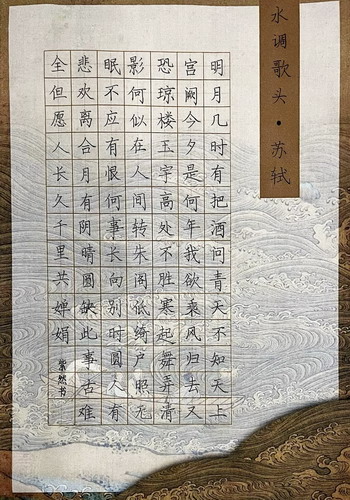 水调歌头·苏轼
明月几时有把酒问青天不知天上
宫阙今夕是何年我欲乘风归去又
恐琼楼玉宇高处不胜寒起舞弄清
影何似在人间转朱阁低绮户照无
眠不应有恨何事长向别时圆人有
悲欢离合月有阴晴圆缺此事古难
全但愿人长久千里共婵娟
紫然书